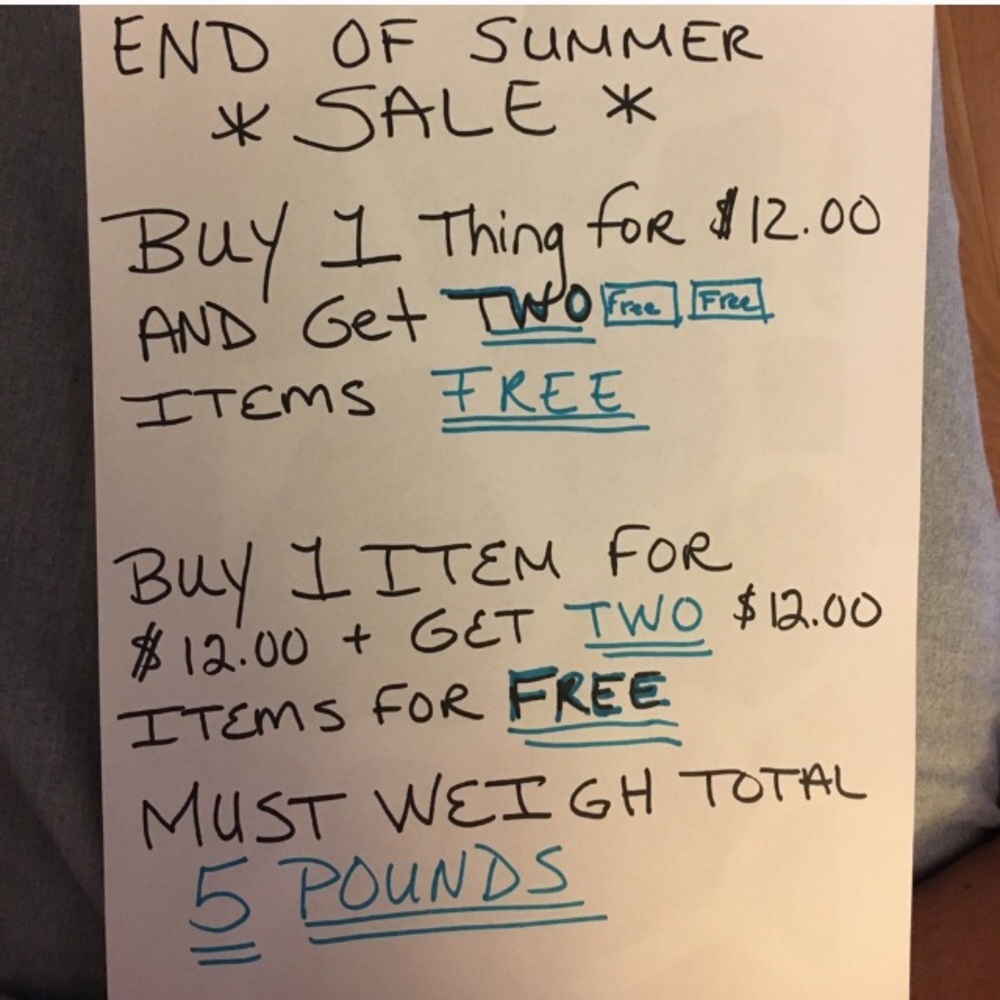 END OF SUMMER
* SALE *
BUY 1 Thing foR $12.00
AND Get TWO Free Free
ITEMS FREE
BUY 1 ITEM FOR
$12.00 + GET TWO $12.00
ITEMS FOR FREE
MUST WEIGH TOTAL
5 POUNDS